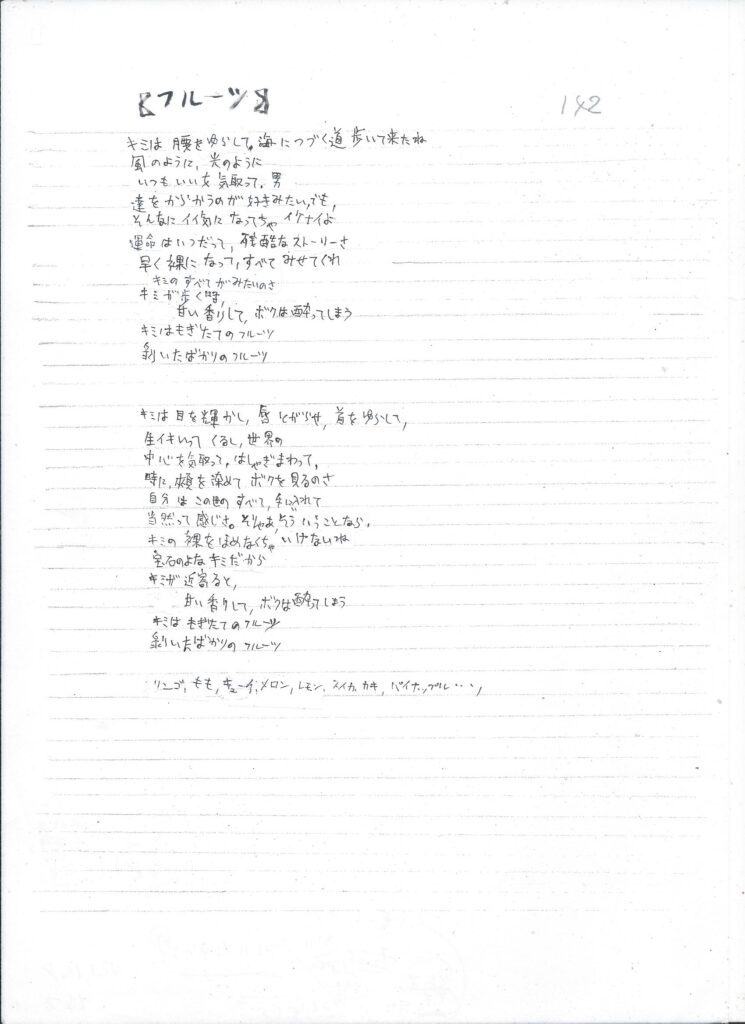 【フルーツ】
142
キミは 腰をゆらして。海につづく道 歩いて来たね
風のように、光のように
いつもいい女気取って。男
達をからかうのが好きみたい。でも、
そんなにイイ気になってちゃイケナイよ
運命はいつだって、残酷なストーリーさ
早く裸になって、すべてみせてくれ
キミのすべてがみたいのさ
キミが歩く時、
甘い香りして、ボクは酔ってしまう
キミはもぎたてのフルーツ
剥いたばかりのフルーツ
キミは目を輝かし、唇とがらせ、首をゆらして、
生イキいってくるし、世界の
中心を気取って。はしゃぎまわって。
時に、頬を染めてボクを見るのさ
自分はこの世のすべて、手に入れて
当然って感じさ。そりゃあ、そういうことなら、
キミの裸をほめなくちゃいけないね
宝石のよなキミだから
キミが近寄ると、
甘い香りして、ボクは酔ってしまう
キミはもぎたてのフルーツ
剥いたばかりのフルーツ
リンゴ、もも、キューイ、メロン、レモン、スイカ、カキ、パイナップル・・・、